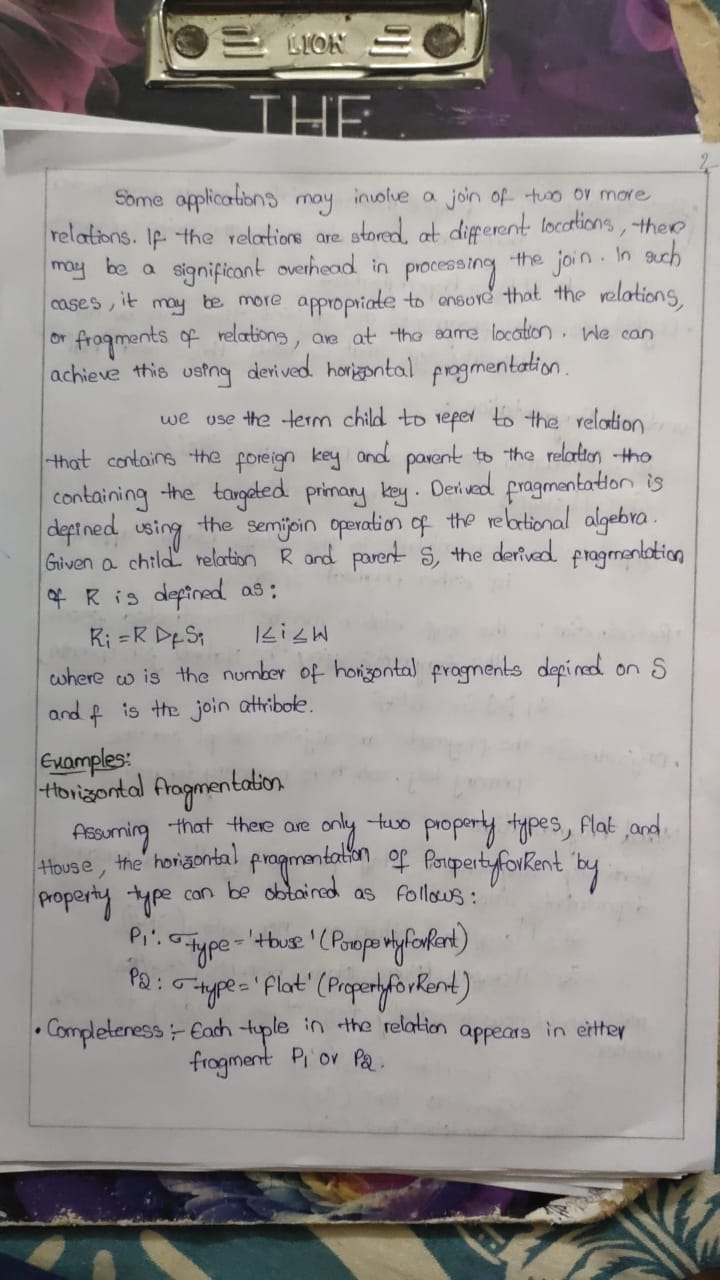 LION
THE
2
Some applications may involve a join of two or more
relations. If the relations are stored at different locations, there
may be a significant overhead in processing the join. In such
cases, it may be more appropriate to ensure that the relations,
or fragments of relations, are at the same location. We can
achieve this using derived horizontal fragmentation.
we use the term child to refer to the relation
that contains the foreign key and parent to the relation tho
containing the targeted primary key. Derived fragmentation is
defined using the semijoin operation of the relational algebra.
Given a child relation R and parent S, the derived fragmentation
of R is defined as:
Ri = R ▷f Si 1≤i≤W
where w is the number of horizontal fragments defined on S
and f is the join attribute.
Examples:
Horizontal fragmentation
Assuming that there are only two property types, flat and
House, the horizontal fragmentation of PoropertyforRent by
property type can be obtained as follows:
P1: σtype='House'(PoropertyforRent)
P2: σtype='flat'(PropertyforRent)
• Completeness :- Each tuple in the relation appears in either
fragment P1 or P2.